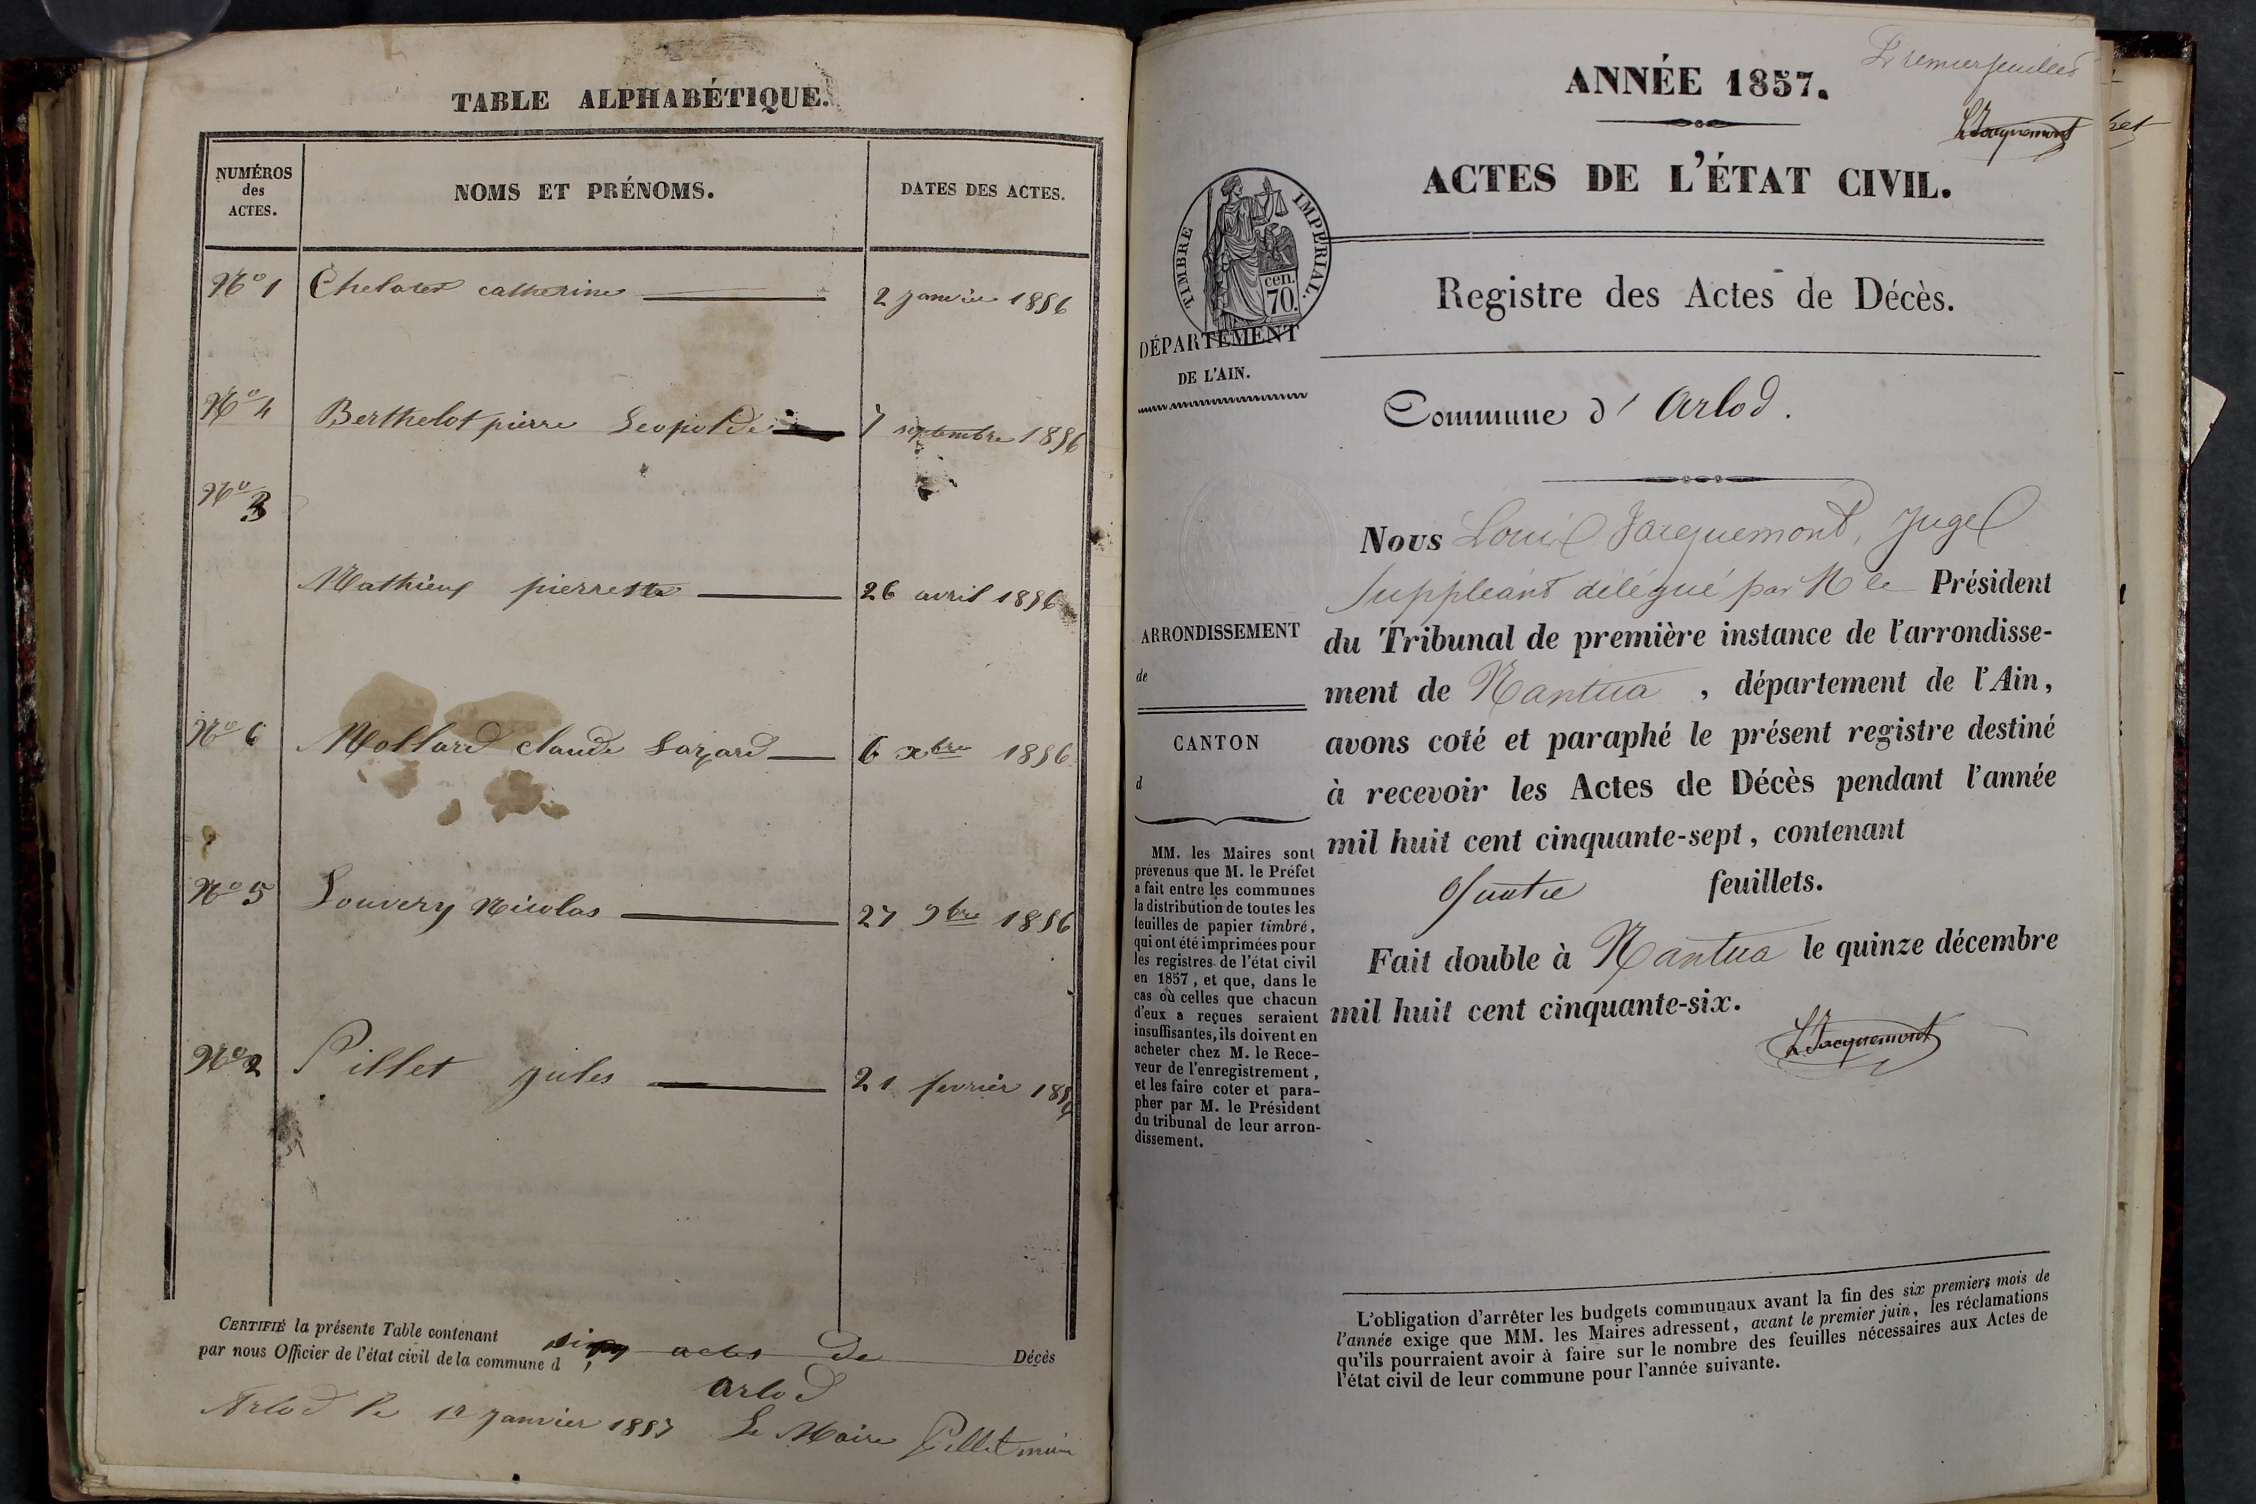 TABLE ALPHABÉTIQUE.
NUMÉROS
des
ACTES.
NOMS ET PRÉNOMS.
DATES DES ACTES.
No 1 catherine 2 janvier 1856
No 4 Berthelot pierre Leopold 7 septembre 1856
No 3
Mathieux pierrette 26 avril 1856
No 6 Mollard claude Lazard 6 xbre 1856
No 5 Louvery Nicolas 27 9bre 1856
No 2 Pillet jules 21 fevrier 1856
CERTIFIÉ la présente Table contenant six actes de Décès
par nous Officier de l'état civil de la commune d
Arlod
Arlod le 1r janvier 1857 Le Maire Pillet maire
Premier feuillet
LJacquemont
ANNÉE 1857.
ACTES DE L'ÉTAT CIVIL.
TIMBRE IMPÉRIAL.
cen.
70.
Registre des Actes de Décès.
DÉPARTEMENT
DE L'AIN.
Commune d' Arlod.
Nous Louis Jacquemont, Juge
Suppléant délégué par M le Président
du Tribunal de première instance de l'arrondisse-
ment de Nantua, département de l'Ain,
avons coté et paraphé le présent registre destiné
à recevoir les Actes de Décès pendant l'année
mil huit cent cinquante-sept, contenant
Quatre feuillets.
Fait double à Nantua le quinze décembre
mil huit cent cinquante-six.
LJacquemont
ARRONDISSEMENT
de
CANTON
d
MM. les Maires sont
prévenus que M. le Préfet
a fait entre les communes
la distribution de toutes les
feuilles de papier timbré,
qui ont été imprimées pour
les registres de l'état civil
en 1857, et que, dans le
cas où celles que chacun
d'eux a reçues seraient
insuffisantes, ils doivent en
acheter chez M. le Rece-
veur de l'enregistrement,
et les faire coter et para-
pher par M. le Président
du tribunal de leur arron-
dissement.
L'obligation d'arrêter les budgets communaux avant la fin des six premiers mois de
l'année exige que MM. les Maires adressent, avant le premier juin, les réclamations
qu'ils pourraient avoir à faire sur le nombre des feuilles nécessaires aux Actes de
l'état civil de leur commune pour l'année suivante.